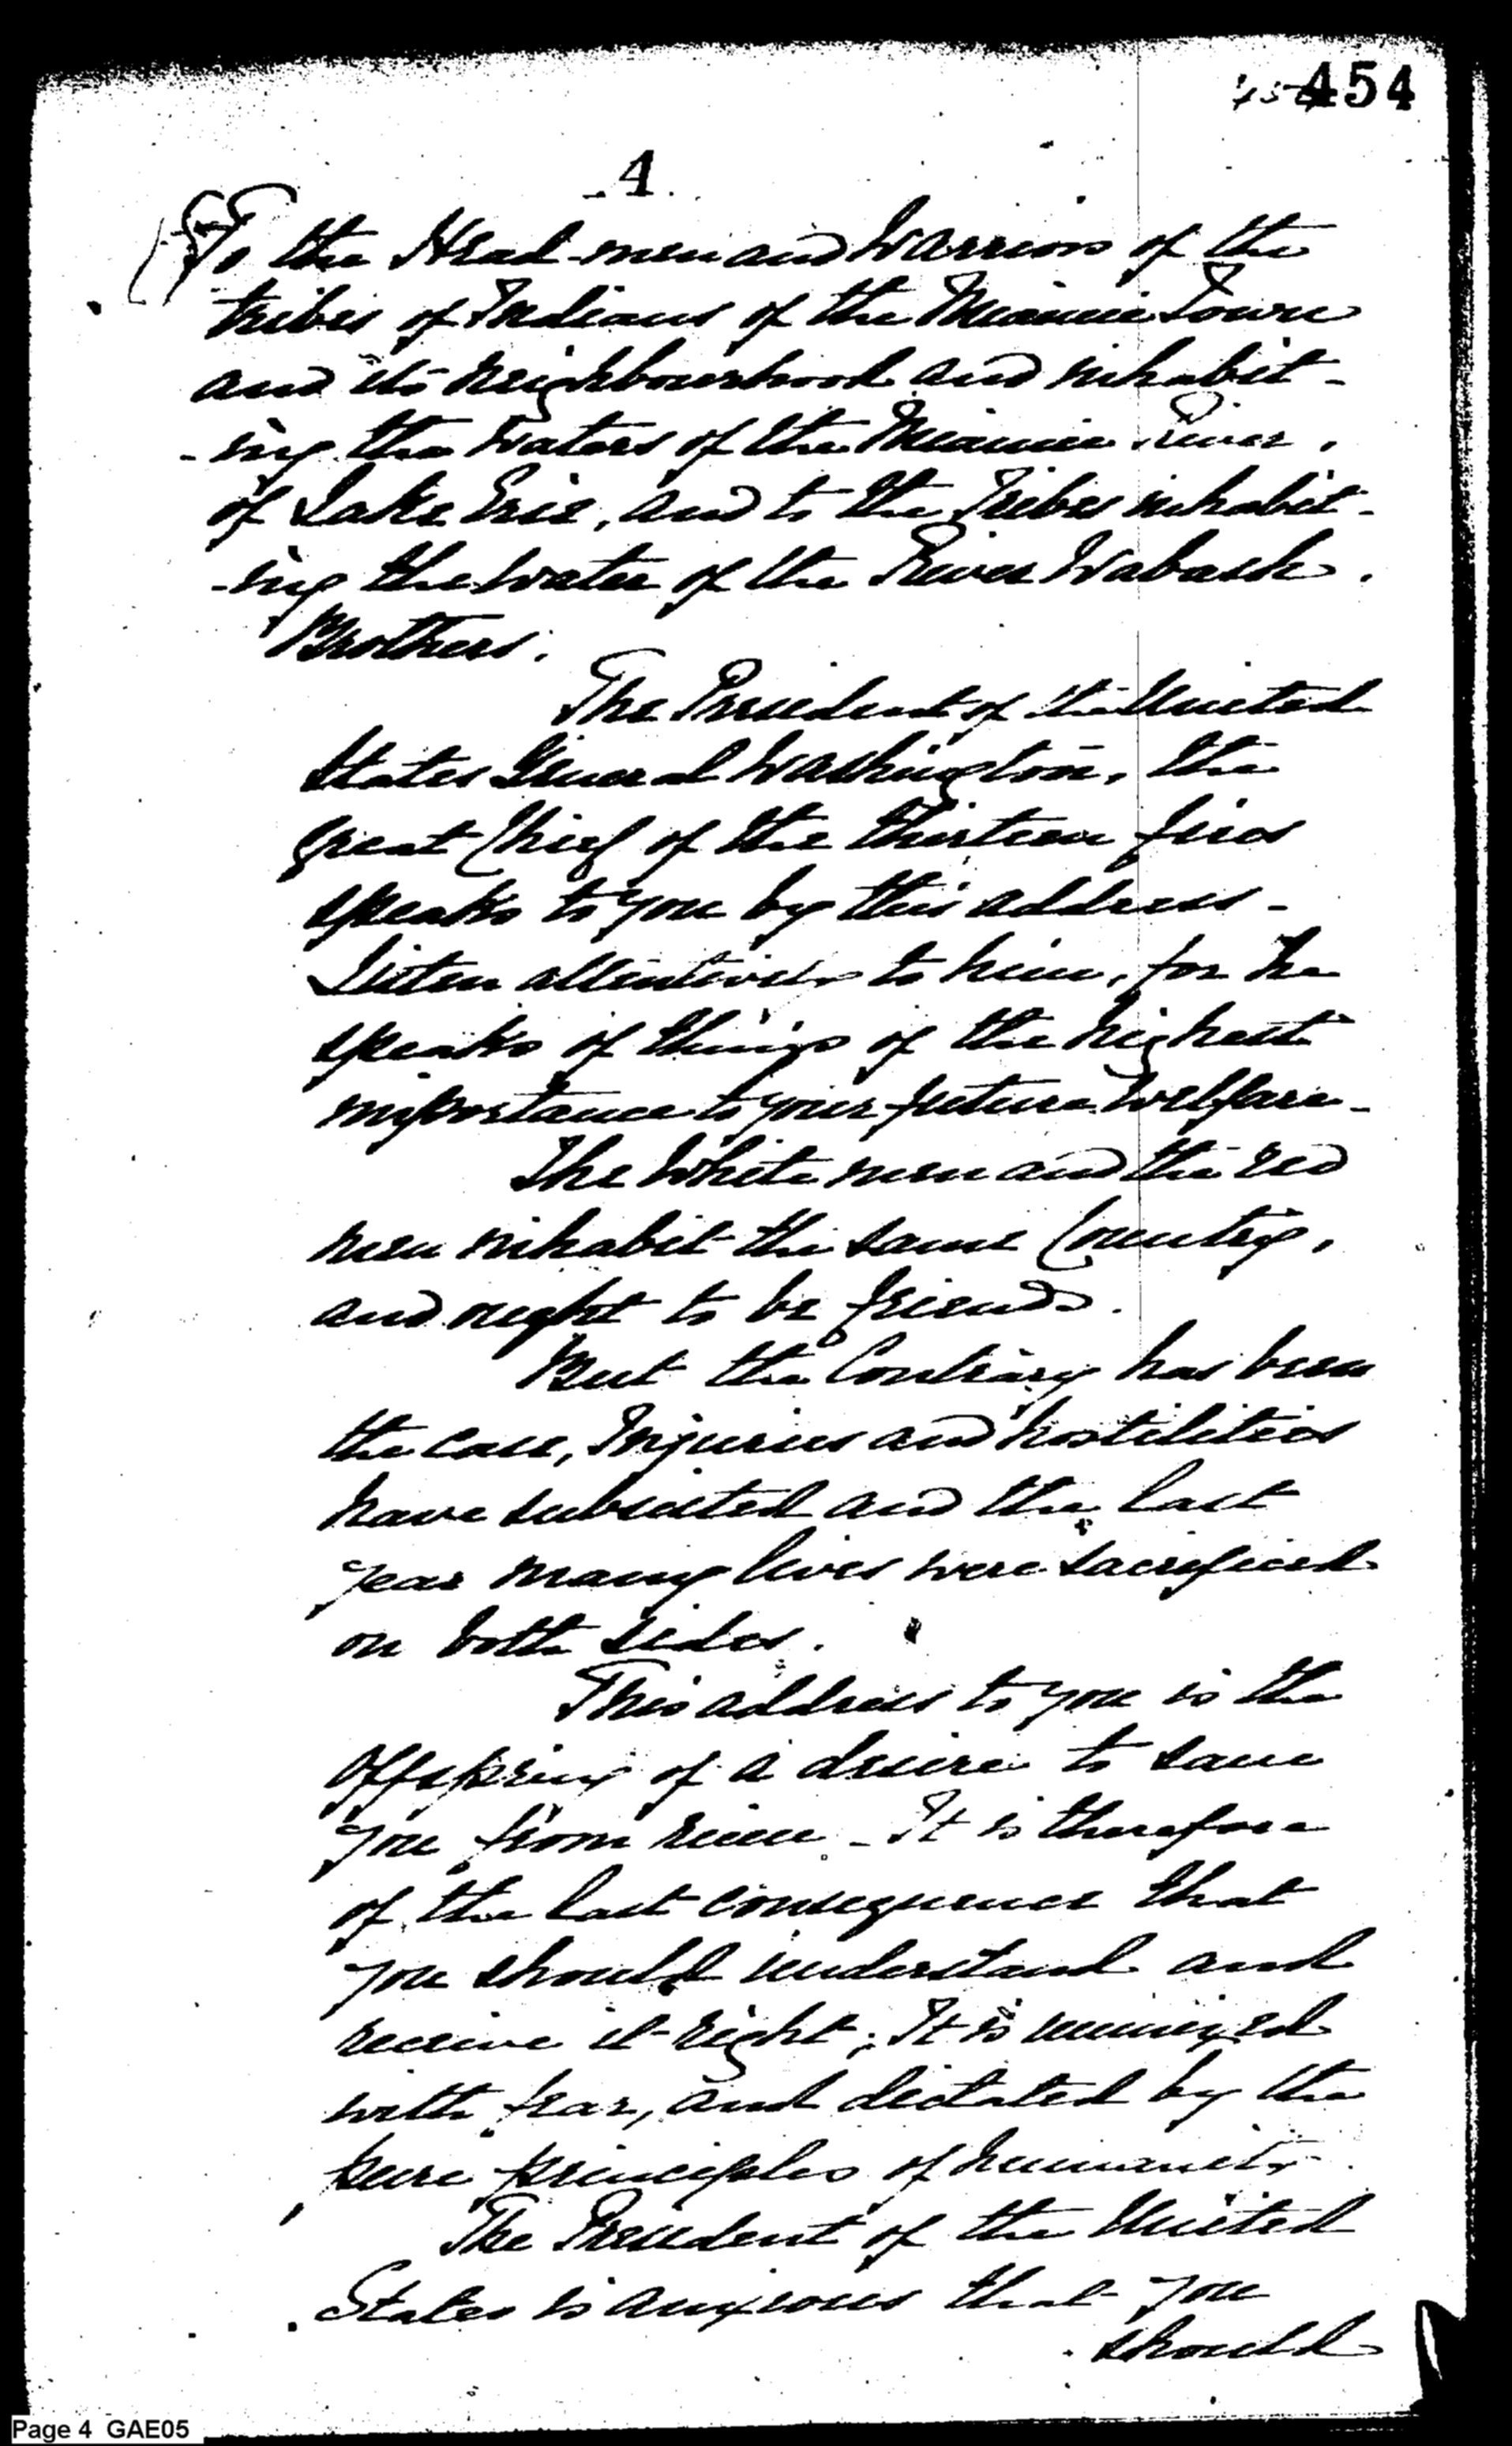 454
A.
To the Head-men and Warriors of the
tribes of Indians of the Miamie Town
and its neighbourhood and inhabit-
-ing the Waters of the Miamie River,
of Lake Erie, and to the Tribes inhabit-
-ing the Water of the River Wabash.
Brothers.
The President of the United
States General Washington, the
Great Chief of the thirteen fires
speaks to you by this address -
Listen attentively to him, for he
speaks of things of the highest
importance to your future Welfare -
The White men and the red
men inhabit the same Country,
and ought to be friends.
But the Contrary has been
the case, Injuries and hostilities
have subsisted and the last
year many lives were sacrificed
on both sides.
This address to you is the
Offspring of a desire to save
you from ruin - It is therefore
of the last consequence that
you should understand and
receive it right; It is unmixed
with fear, and dictated by the
pure principles of humanity.
The President of the United
States is anxious that you
should
Page 4 GAE05